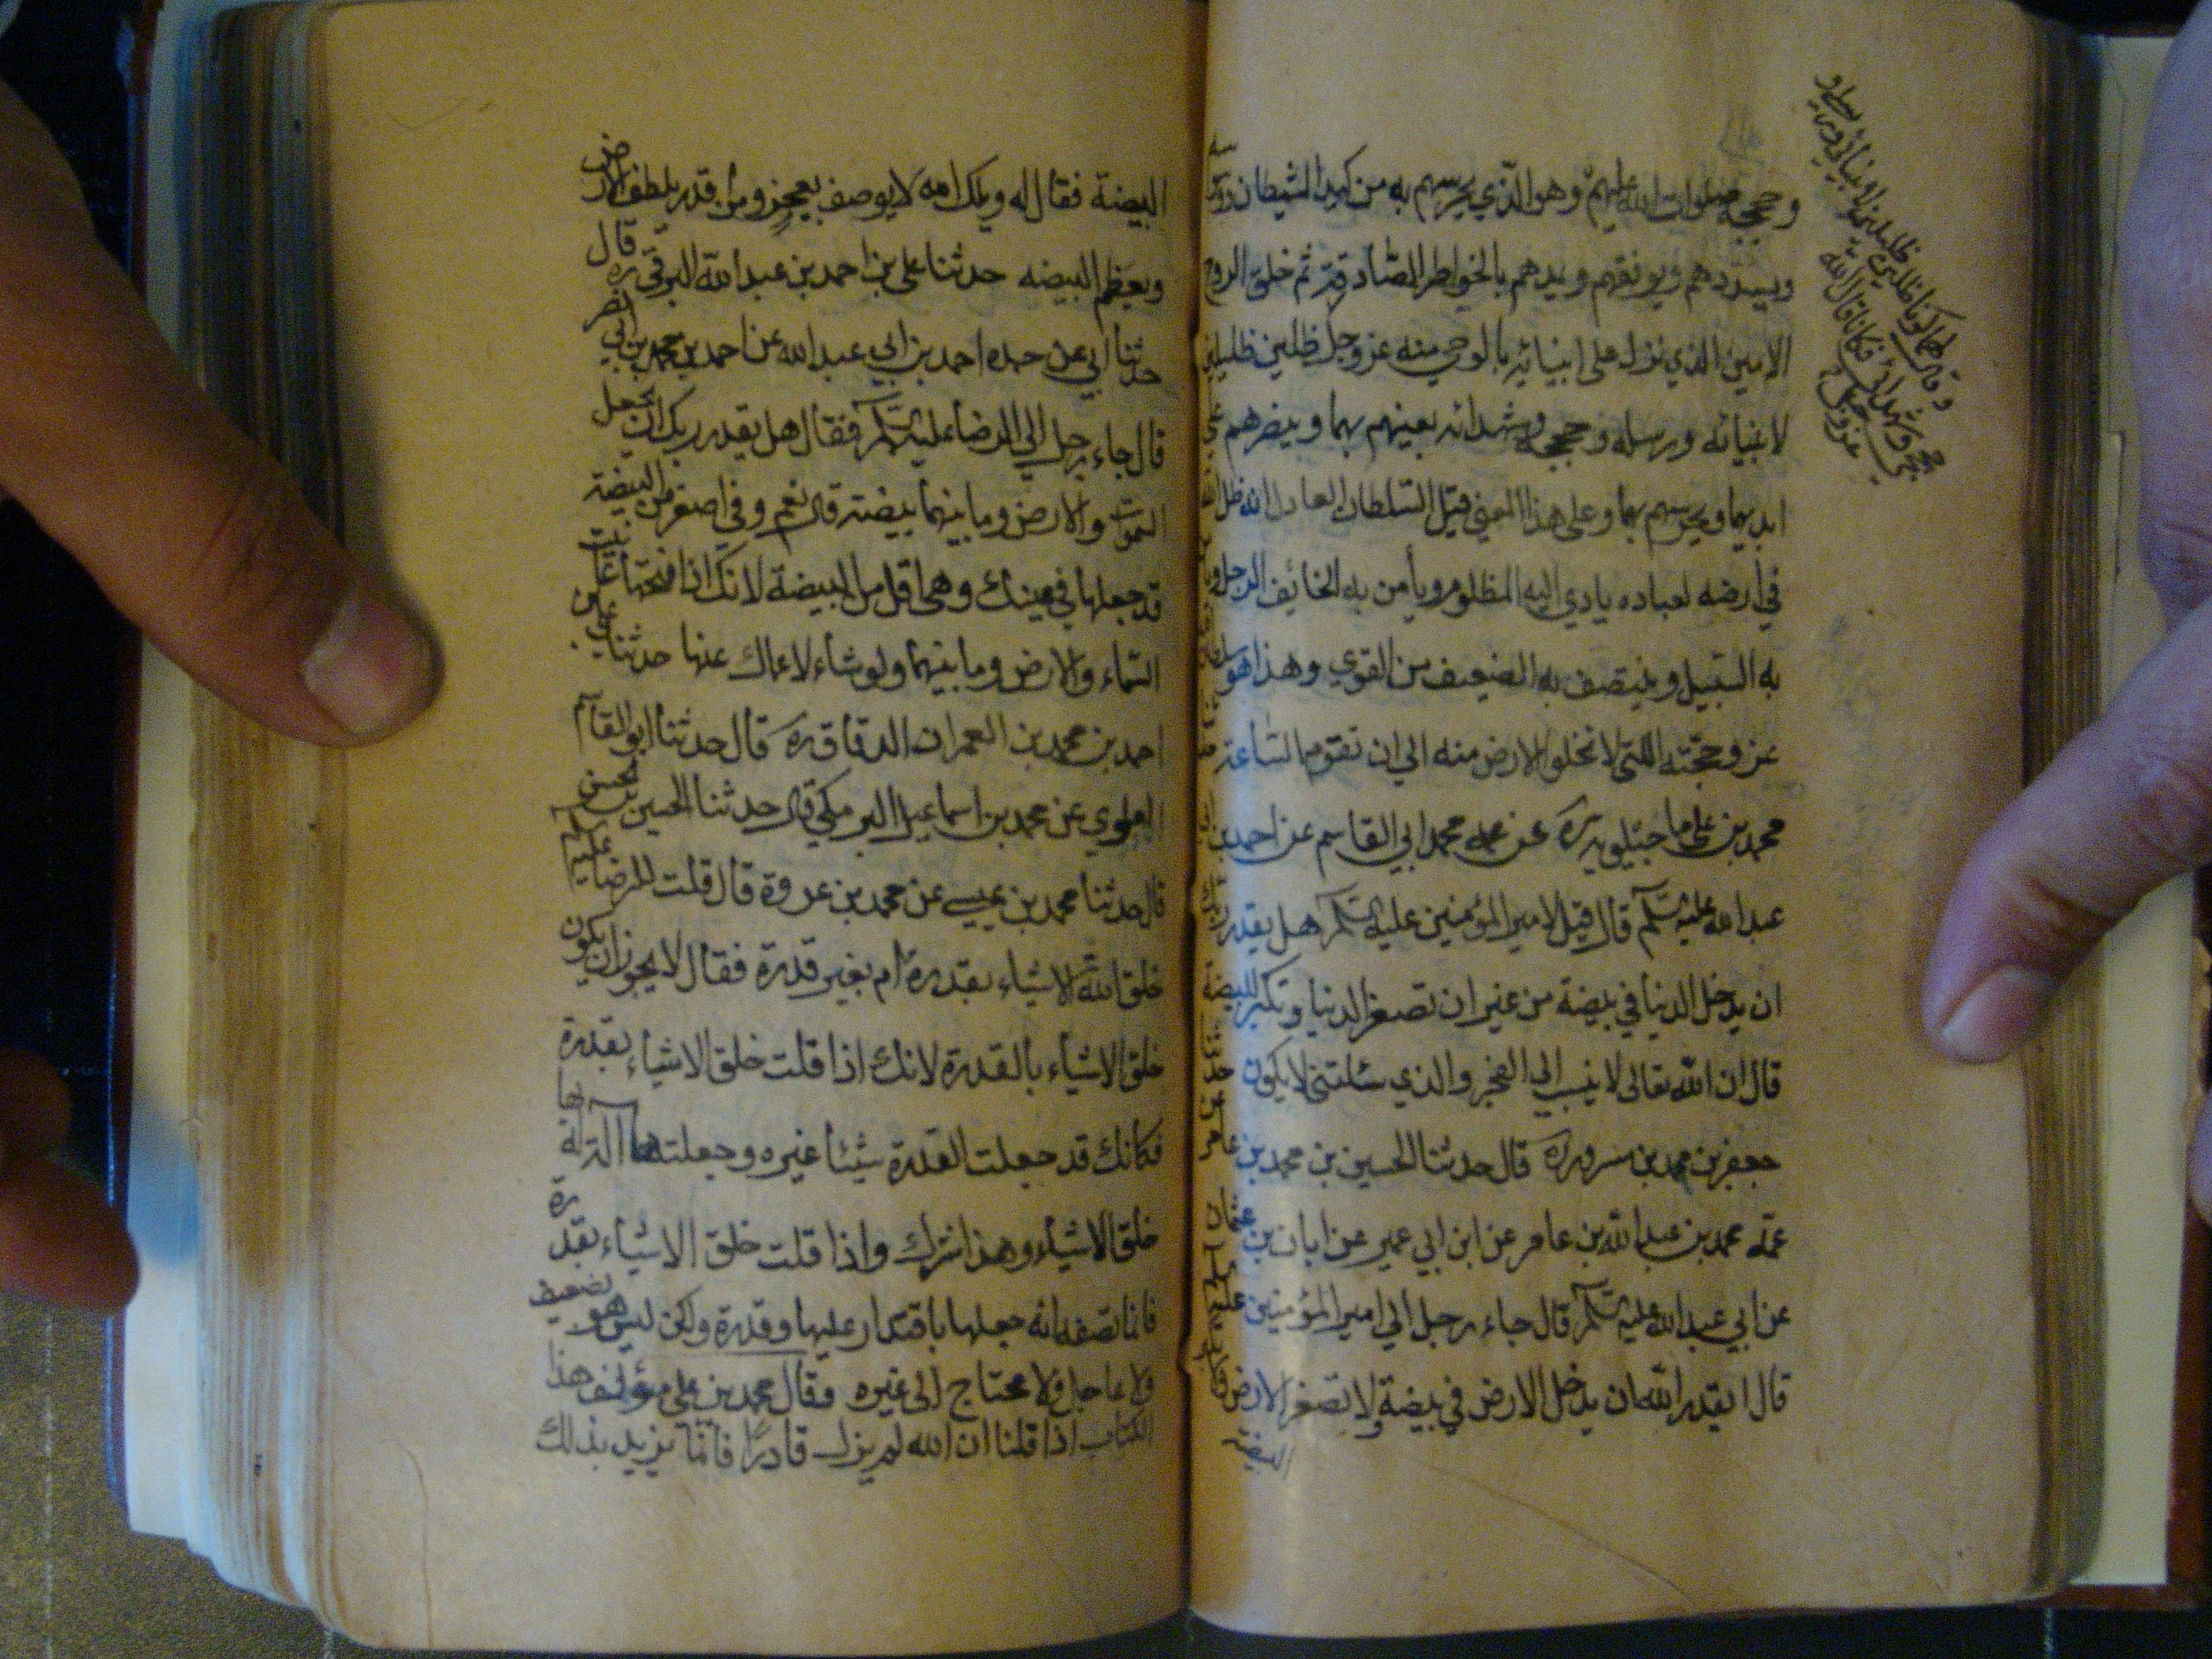 وحججه صلوات الله عليهم وهو الذي يحرسهم به من كيد الشيطان ووسا
سه
ويسددهم ويوفقهم ويمدهم بالخواطر الصادقة ثم خلق الروح
الامين الذي نزل على انبيائه بالوحي منه عز وجل ظلين ظليلين
لانبيائه ورسله وحججه وشهدائه يعينهم بهما وينصرهم على
ايديهما ويحرسهم بهما وعلى هذا المعنى قيل السلطان العادل ظل الله
في ارضه لعباده ياوي اليه المظلوم ويأمن به الخائف الوجل
به السبيل وينتصف به الضعيف من القوي وهذا هو سلطان
عز وحجته اللتي لا تخلوا الارض منه الى ان تقوم الساعة
محمد بن علي ماجيلويه ره عن عمه محمد ابي القاسم عن احمد بن
عبد الله عليه السلم قال قيل لامير المؤمنين عليه السلم هل يقدر ربك
ان يدخل الدنيا في بيضة من غير ان تصغر الدنيا وتكبر البيضة
قال ان الله تعالى لا ينسب الى العجز والذي سئلتني لا يكون حدثنا
جعفر بن محمد بن مسرور ره قال حدثنا الحسين بن محمد بن عامر عن
عمه محمد بن عبد الله بن عامر عن ابن ابي عمير عن ابان بن عثمان
عن ابي عبد الله عليه السلم قال جاء رجل الى امير المؤمنين عليه السلم
قال ايقدر الله ان يدخل الارض في بيضة ولا تصغر الارض ولا تكبر
البيضة
عز وجل
البيضة فقال له ويلك الله لا يوصف بعجز ومن اقدر ممن يلطف الارض
ويعظم البيضه حدثنا علي بن احمد بن عبد الله البرقي ره قال
حدثنا ابي عن جده احمد بن ابي عبد الله عن احمد بن محمد بن ابي نصر
قال جاء رجل الى الرضا عليه السلم فقال هل يقدر ربك ان يجعل
السموات والارض وما بينهما بيضة قال نعم وفي اصغر من البيضة
قد جعلها في عينك وهي اقل من البيضة لانك اذا فتحتها عاينت
السماء والارض وما بينهما ولو شاء لاعماك عنها حدثنا علي بن
احمد بن محمد بن العمران الدقاق ره قال حدثنا ابو القاسم
العلوي عن محمد بن اسماعيل البرمكي قال حدثنا الحسين بن الحسن
قال حدثنا محمد بن عيسى عن محمد بن عروة قال قلت للرضا عليه السلم
خلق الله الاشياء بقدرة ام بغير قدرة فقال لا يجوز ان يكون
خلق الاشياء بالقدرة لانك اذا قلت خلق الاشياء بقدرة
فكانك قد جعلت القدرة شيئا غيره وجعلتها آلة له بها
خلق الاشياء وهذا شرك واذا قلت خلق الاشياء بقدرة
فانما تصفه انه جعلها باقتدار عليها وقدرة ولكن ليس هو بضعيف
ولا عاجل ولا محتاج الى غيره وقال محمد بن علي مؤلف هذا
الكتاب اذا قلنا ان الله لم يزل قادرا فانما نريد بذلك